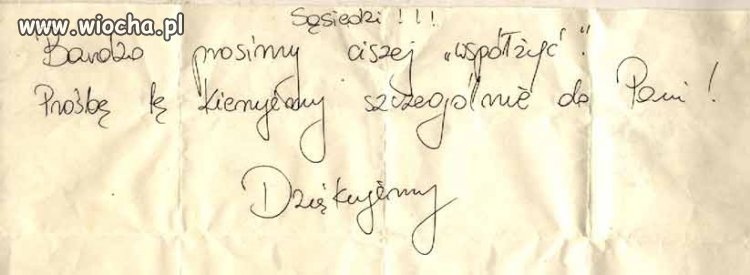 www.wiocha.pl
Sąsiedzi !!!
Bardzo prosimy ciszej „współżyć".
Prośbę tę kierujemy szczególnie do Pani !
Dziękujemy